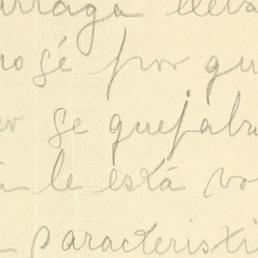 urraga lleva
no sé por qu
er se quejab
a le está vo
paracteristi